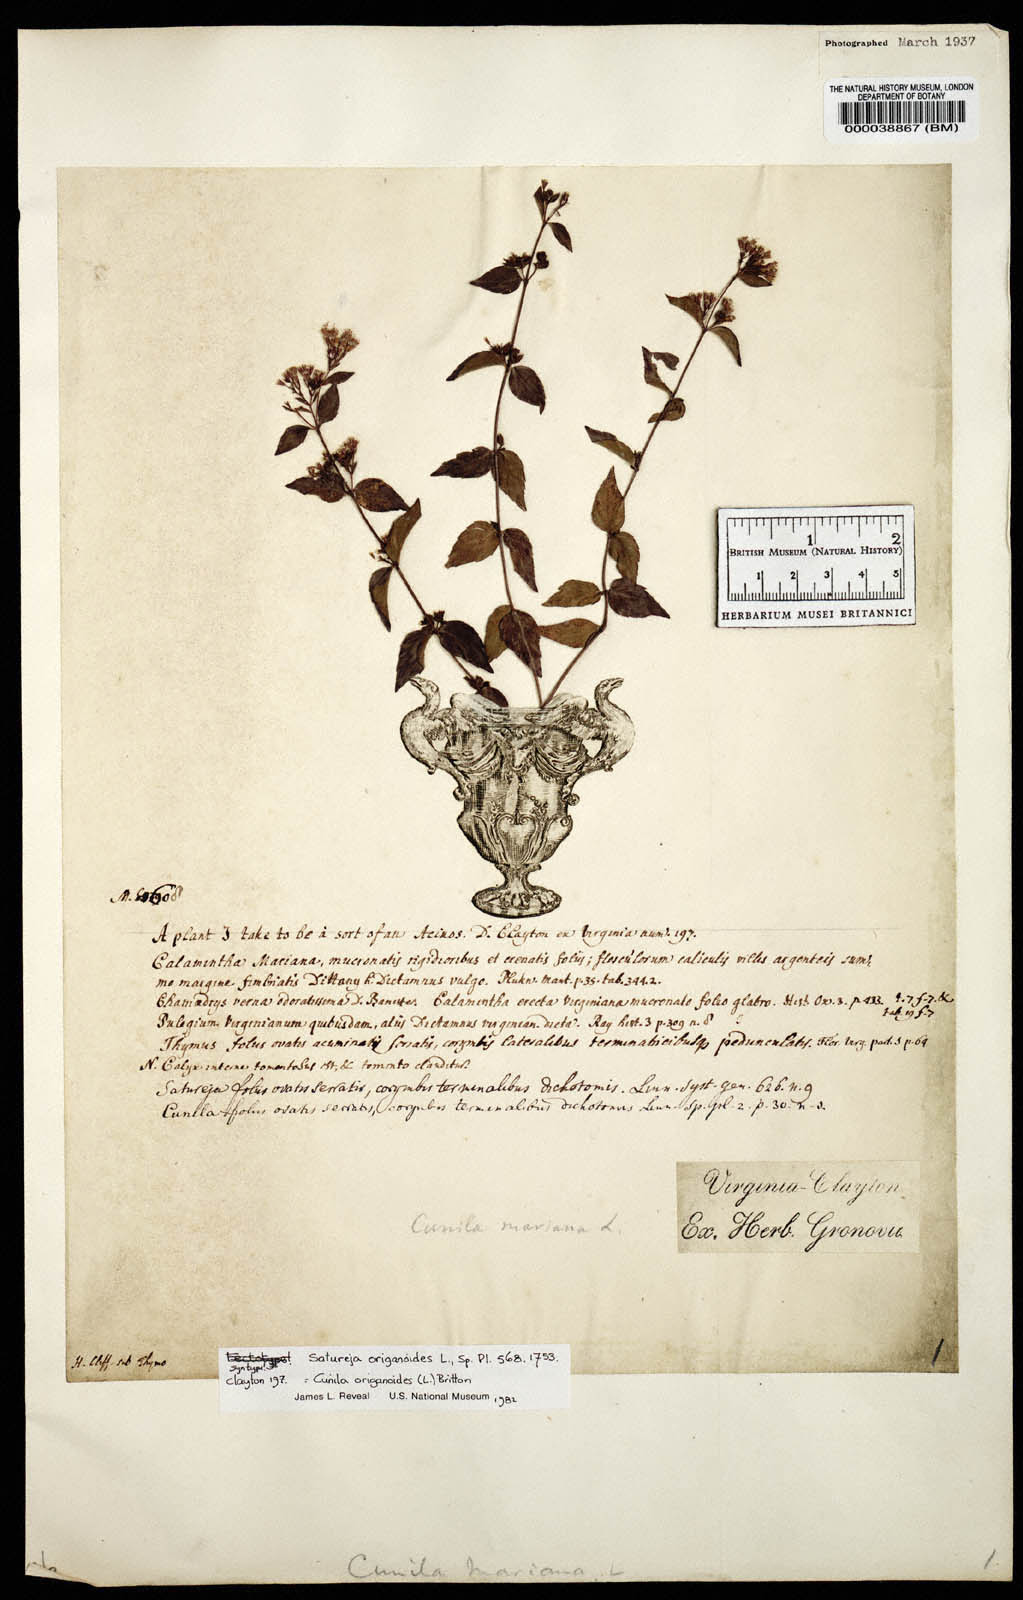 Photographed March 1937
THE NATURAL HISTORY MUSEUM, LONDON
DEPARTMENT OF BOTANY
000038867 (BM)
1 2
BRITISH MUSEUM (NATURAL HISTORY)
1 2 3 4 5
HERBARIUM MUSEI BRITANNICI
A plant I take to be a sort of an Acinos. D. Clayton ex Virginia num. 197.
Calamintha Mariana, mucronatis rigidioribus et crenatis foliis; flosculorum caliculis villis argenteis sum,
mo margine fimbriatis Dittany h. Dictamnus vulgo. Plukn. Mant. p. 35. tab. 344. 2.
Chamædrys verna odoratissima D. Banister. Calamintha erecta Virginiana mucronato folio glabro. Hist. Ox. 3. p. 413. s. 7. f. 7. &
tab. 19 f. 7
Pulegium Virginianum quibusdam, aliis Dictamnus virginian. dicta. Ray hist. 3 p. 309 n. 8
Thymus foliis ovatis acuminatis serratis, corymbis lateralibus terminatricibusq pedunculatis. Flor. Virg. part. 1 p. 64
N. Calyx interne tomentosus est, & tomento clauditur.
Satureja foliis ovatis serratis, corymbis terminalibus dichotomis. Linn. Syst. gen. 626. n. 9
Cunila foliis ovatis serratis, corymbis terminalibus dichotomis Linn. Sp. pl. 2. p. 30. n. 3.
Virginia-Clayton.
Ex. Herb. Gronovii.
Cunila mariana L.
H. Cliff. sub Thymo
1
Lectotype! Satureja origanoides L., Sp. Pl. 568. 1753.
Syntype!
Clayton 197. = Cunila origanoides (L.) Britton
James L. Reveal U.S. National Museum 1982
Cunila mariana L
1.